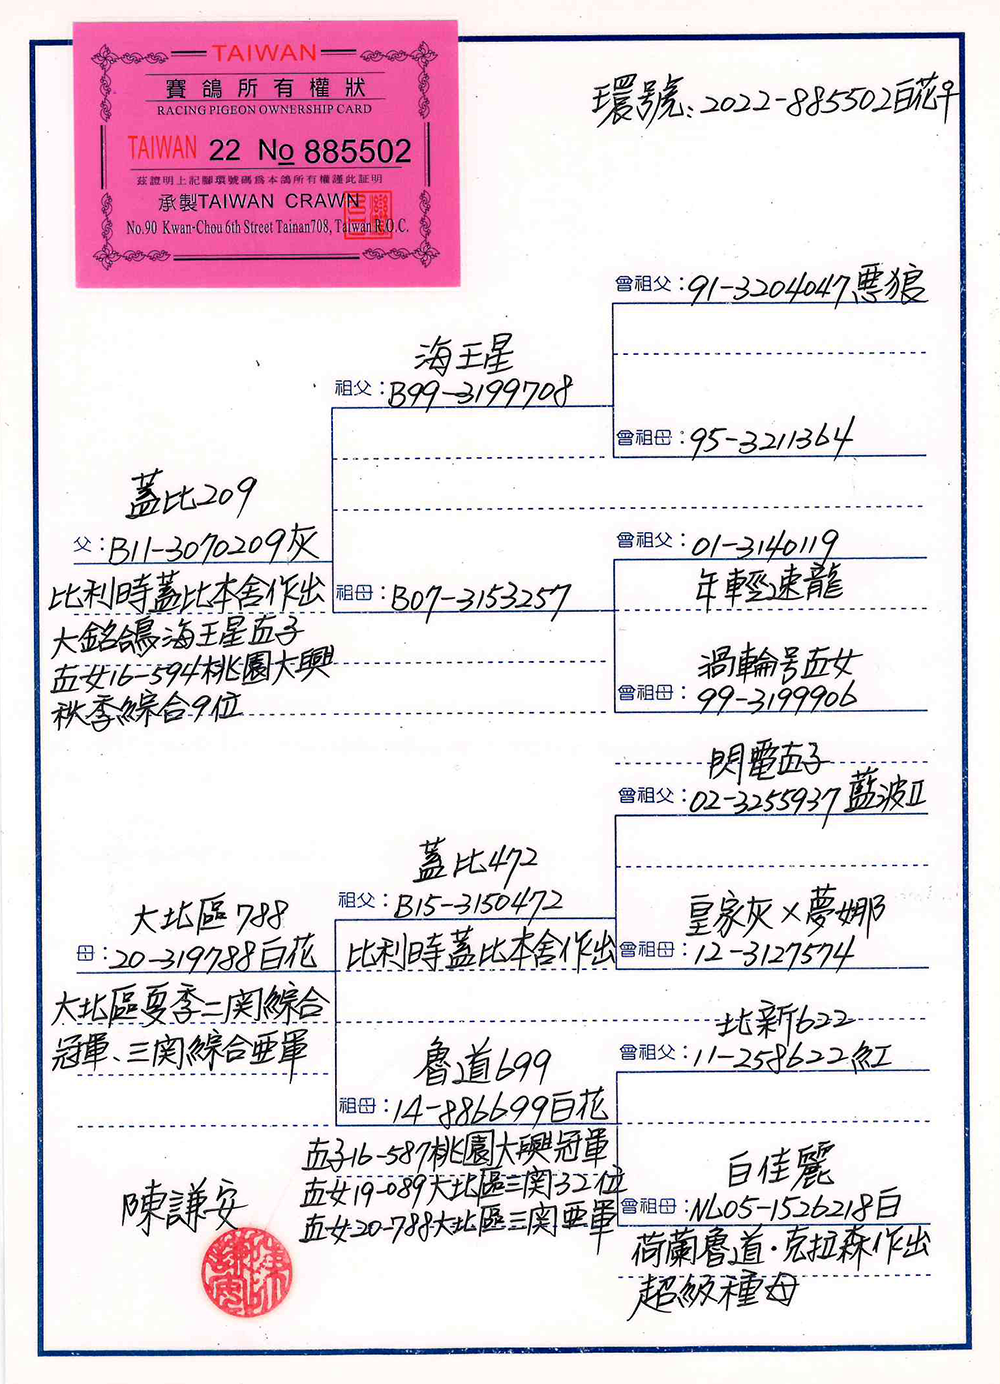 TAIWAN
賽鴿所有權狀
RACING PIGEON OWNERSHIP CARD
TAIWAN 22 No 885502
茲證明上記腳環號碼為本鴿所有權謹此証明
承製TAIWAN CRAWN
No.90 Kwan-Chou 6th Street Tainan708, Taiwan R.O.C.
環號:2022-885502白花♀
曾祖父:91-3204047惡狼
海王星
祖父:B99-3199708
曾祖母:95-3211364
蓋比209
父:B11-3070209灰
比利時蓋比本舍作出
大銘鴿海王星直子
直女16-594桃園大興
秋季綜合9位
曾祖父:01-3140119
年輕速龍
祖母:B07-3153257
渦輪号直女
曾祖母:99-3199906
閃電直子
曾祖父:02-3255937藍波II
蓋比472
祖父:B15-3150472
比利時蓋比本舍作出
皇家灰×夢娜
曾祖母:12-3127574
大北區788
母:20-319788白花
大北區夏季二関綜合
冠軍、三関綜合亞軍
北新622
曾祖父:11-258622紅
魯道699
祖母:14-886699白花
直子16-587桃園大興冠軍
直女19-089大北區三関32位
直女20-788大北區三関亞軍
白佳麗
曾祖母:NL05-1526218白
荷蘭魯道·克拉森作出
超級種母
陳謙安